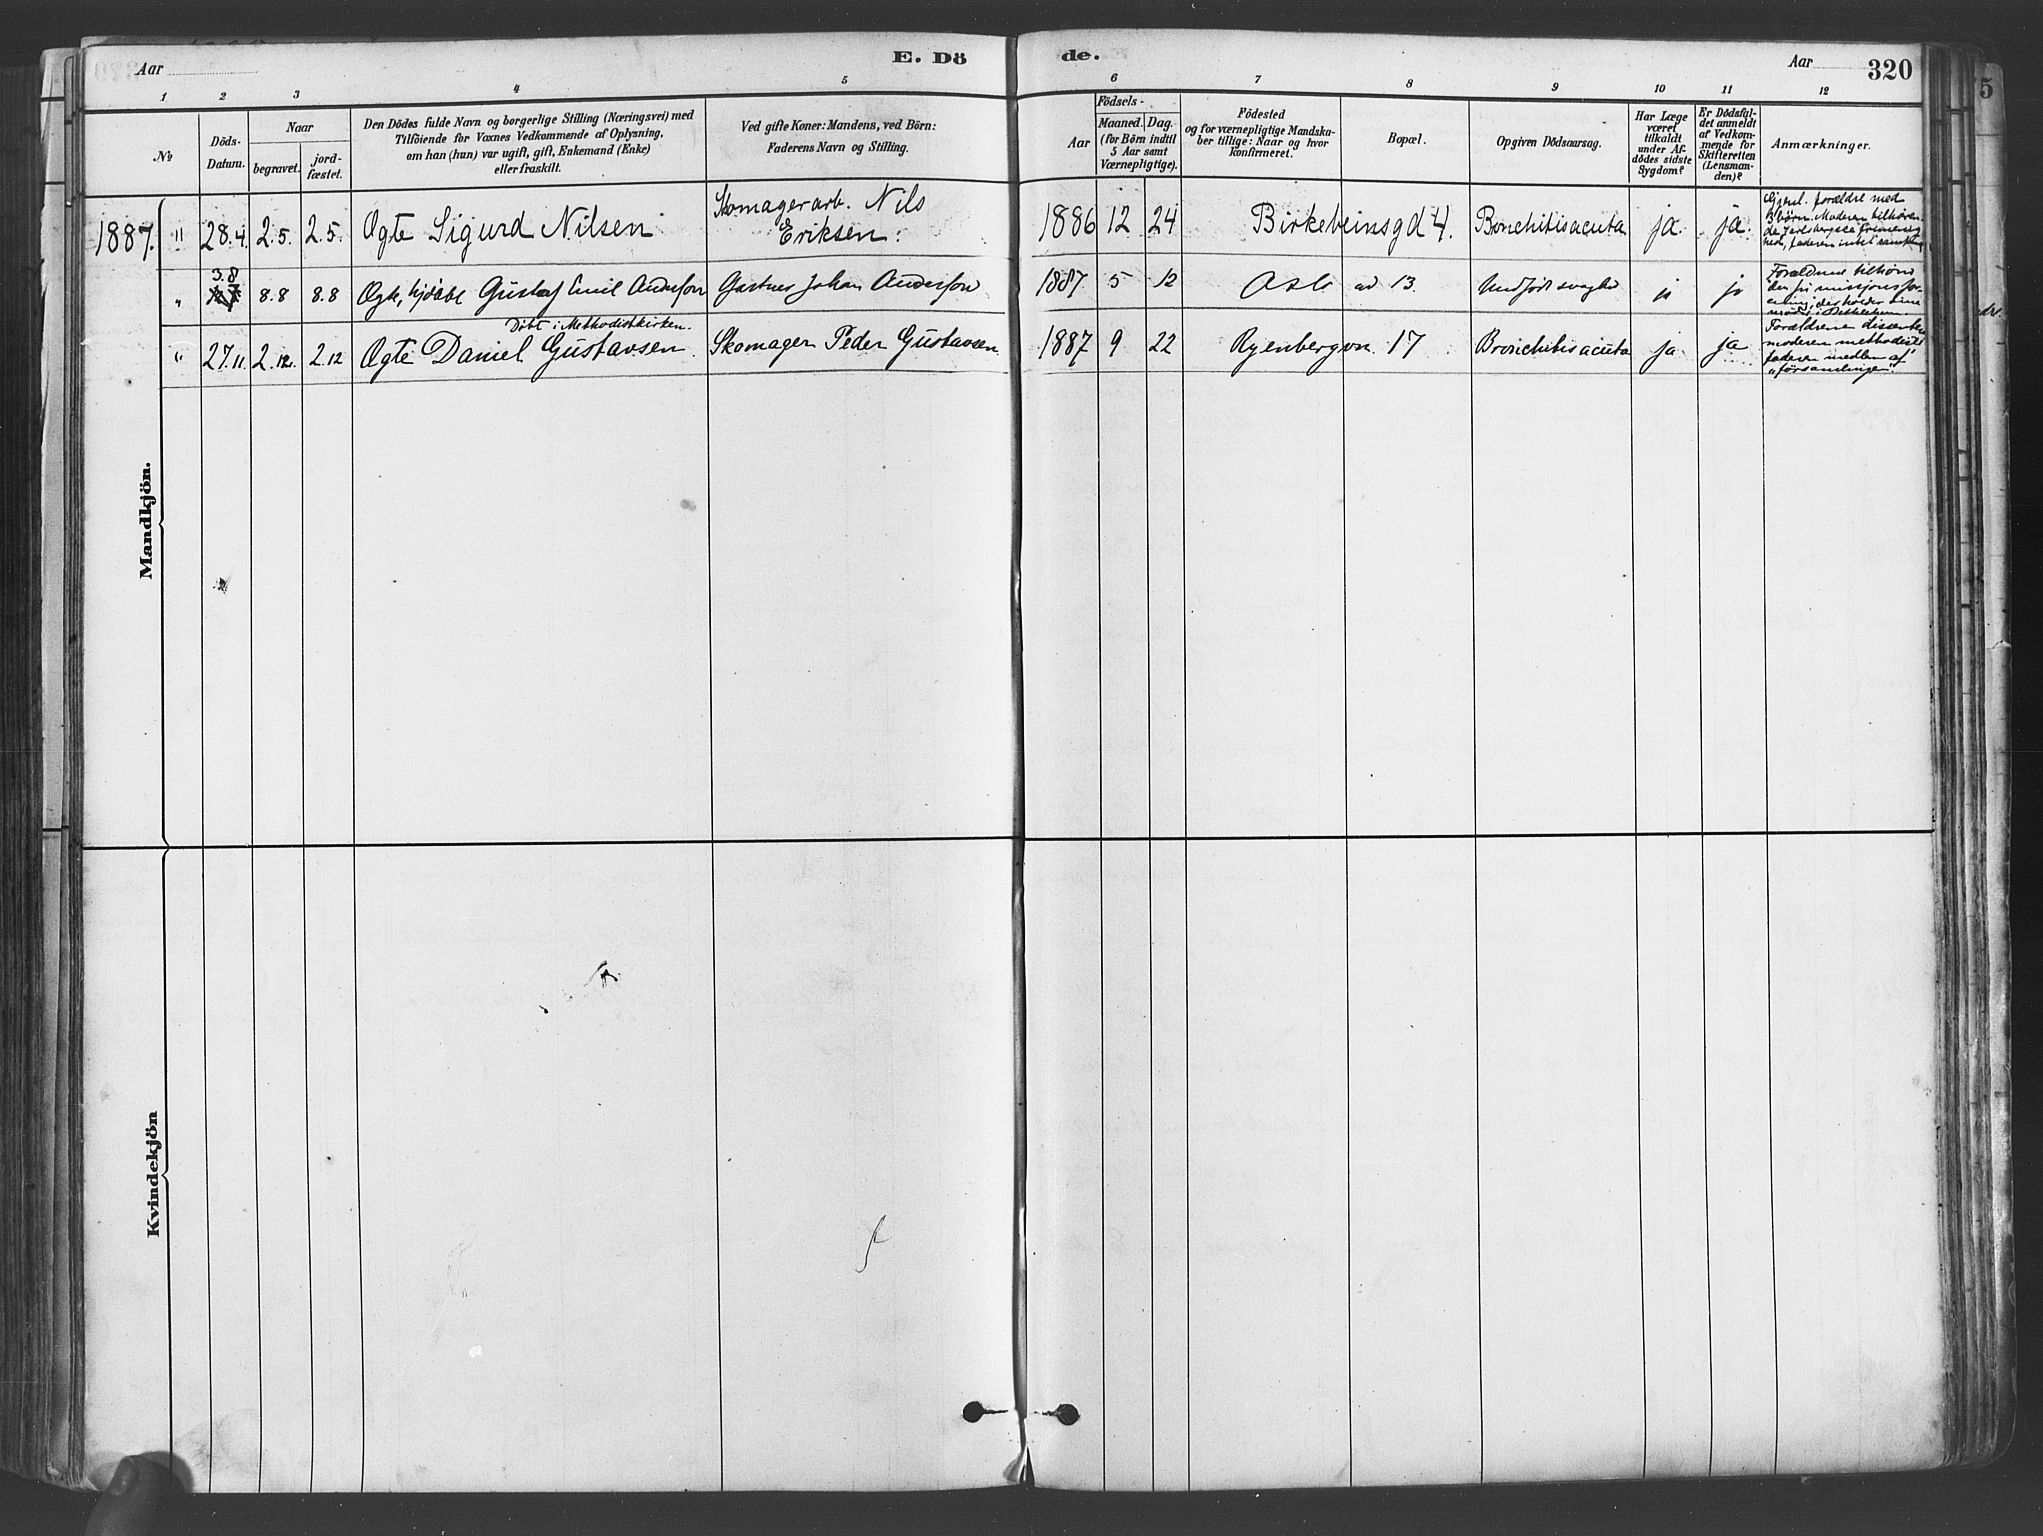 Aar
E. Dö
de.
Aar
320
1
2
3
4
5
6
7
8
9
10
11
12
No
Döds-
Datum.
Naar
begravet.
jord-
fæstet.
Den Dödes fulde Navn og borgerlige Stilling (Næringsvei) med
Tilföiende for Voxnes Vedkommende af Oplysning,
om han (hun) var ugift, gift, Enkemand (Enke)
eller fraskilt.
Ved gifte Koner: Mandens, ved Börn:
Faderens Navn og Stilling.
Födsels-
Aar
Maaned.
Dag.
(for Börn indtil
5 Aar samt
Værnepligtige).
Födested
og for værnepligtige Mandska-
ber tillige: Naar og hvor
konfirmeret.
Bopæl.
Opgiven Dödsaarsag.
Har Læge
været
tilkaldt
under Af-
dödes sidste
Sygdom?
Er Dödsfal-
det anmeldt
af Vedkom-
mende for
Skifteretten
(Lensman-
den)?
Anmærkninger.
1887. " 28.4. 2.5. 2.5. Ægte Sigurd Nilsen Skomagerarb. Nils
Eriksen: 1886 12 24 Birkebeinsgd 4. Bronchitis acuta ja. ja.
forældre med
3 børn. Moderen tilhøren-
de Jarlsbergske frimenig-
hed, faderen intet samfund
" 3.8 8.8 8.8 Ægte, hjdøbt Gustaf Emil Andersson Gartner Johan Andersson 1887 5 12 Oslo 13. Medfødt svaghed ja ja
Forældrene tilhører
den fri missjonsfor-
ening, der holder sine
møder i Bethlehem
Døbt i Methodistkirken.
" 27.11. 2.12. 2.12 Ægte Daniel Gustavsen Skomager Peder Gustavsen 1887 9 22 Ryenbergvn. 17 Bronchitis acuta ja ja
Forældrene dissentere
moderen methodist
faderen medlem af
"forsamlingen".
Mandkjön.
Kvindekjön